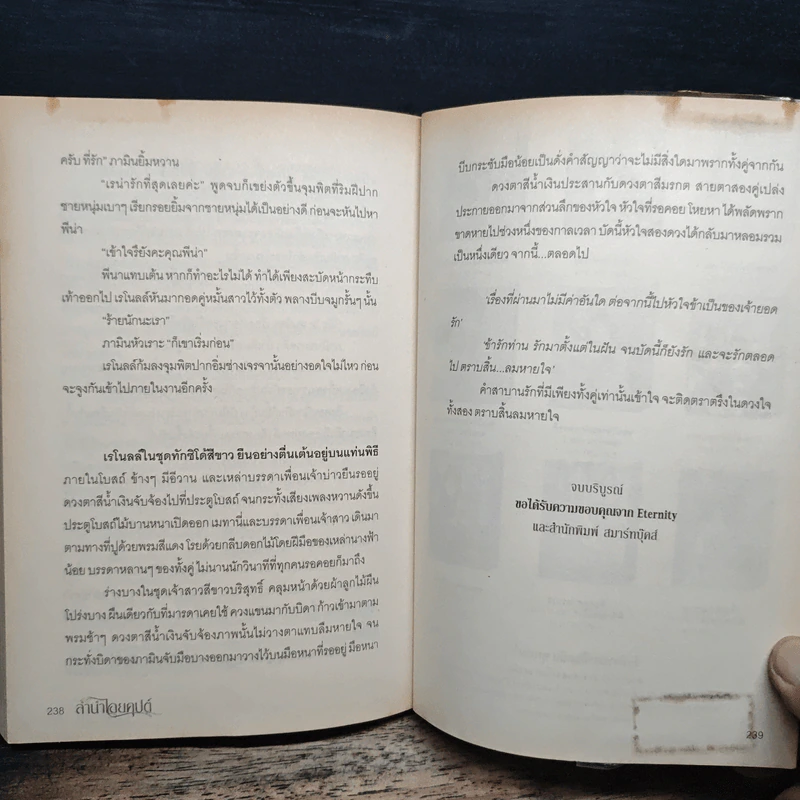 ครับ ที่รัก" ภามินยิ้มหวาน
"เรน่ารักที่สุดเลยค่ะ" พูดจบก็เขย่งตัวขึ้นจุมพิตที่ริมฝีปาก
ชายหนุ่มเบาๆ เรียกรอยยิ้มจากชายหนุ่มได้เป็นอย่างดี ก่อนจะหันไปหา
พีน่า
"เข้าใจรึยังคะคุณพีน่า"
พีนาแทบเต้น หากก็ทำอะไรไม่ได้ ทำได้เพียงสะบัดหน้ากระทืบ
เท้าออกไป เรโนลล์หันมากอดคู่หมั้นสาวไว้ทั้งตัว พลางบีบจมูกรั้นๆ นั้น
"ร้ายนักนะเรา"
ภามินหัวเราะ "ก็เขาเริ่มก่อน"
เรโนลล์ก้มลงจุมพิตปากอิ่มช่างเจรจานั้นอย่างอดใจไม่ไหว ก่อน
จะจูงกันเข้าไปภายในงานอีกครั้ง
เรโนลล์ในชุดทักซิโด้สีขาว ยืนอย่างตื่นเต้นอยู่บนแท่นพิธี
ภายในโบสถ์ ข้างๆ มีอีวาน และเหล่าบรรดาเพื่อนเจ้าบ่าวยืนรออยู่
ดวงตาสีน้ำเงินจับจ้องไปที่ประตูโบสถ์ จนกระทั่งเสียงเพลงหวานดังขึ้น
ประตูโบสถ์ไม้บานหนาเปิดออก เมทานี่และบรรดาเพื่อนเจ้าสาว เดินมา
ตามทางที่ปูด้วยพรมสีแดง โรยด้วยกลีบดอกไม้โดยฝีมือของเหล่านางฟ้า
น้อย บรรดาหลานๆ ของทั้งคู่ ไม่นานนักวินาทีที่ทุกคนรอคอยก็มาถึง
ร่างบางในชุดเจ้าสาวสีขาวบริสุทธิ์ คลุมหน้าด้วยผ้าลูกไม้ผืน
โปร่งบาง ผืนเดียวกับที่มารดาเคยใช้ ควงแขนมากับบิดา ก้าวเข้ามาตาม
พรมช้าๆ ดวงตาสีน้ำเงินจับจ้องภาพนั้นไม่วางตาแทบลืมหายใจ จน
กระทั่งบิดาของภามินจับมือบางออกมาวางไว้บนมือหนาที่รออยู่ มือหนา
238 ลำนำไอยคุปต์
บีบกระชับมือน้อยเป็นดั่งคำสัญญาว่าจะไม่มีสิ่งใดมาพรากทั้งคู่จากกัน
ดวงตาสีน้ำเงินประสานกับดวงตาสีมรกต สายตาสองคู่เปล่ง
ประกายออกมาจากส่วนลึกของหัวใจ หัวใจที่รอคอย โหยหา ได้พลัดพราก
ขาดหายไปช่วงหนึ่งของกาลเวลา บัดนี้หัวใจสองดวงได้กลับมาหลอมรวม
เป็นหนึ่งเดียว จากนี้...ตลอดไป
'เรื่องที่ผ่านมาไม่มีค่าอันใด ต่อจากนี้ไปหัวใจข้าเป็นของเจ้ายอด
รัก'
'ข้ารักท่าน รักมาตั้งแต่ในฝัน จนบัดนี้ก็ยังรัก และจะรักตลอด
ไป ตราบสิ้น...ลมหายใจ'
คำสาบานรักที่มีเพียงทั้งคู่เท่านั้นเข้าใจ จะติดตราตรึงในดวงใจ
ทั้งสอง ตราบสิ้นลมหายใจ
จบบริบูรณ์
ขอได้รับความขอบคุณจาก Eternity
และสำนักพิมพ์ สมาร์ทบุ๊คส์
239